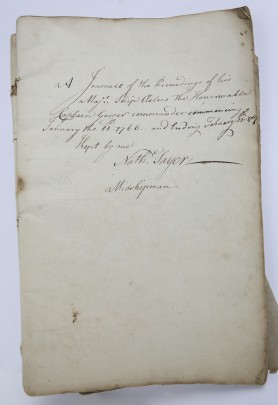 A Journall of the Proceedings of his
Maj:s Ship Aolus the Honourable
Captain Gower commander commencing
January the 11 1766. and Ending February
Kept by me
Nath: Sayer
Midshipman